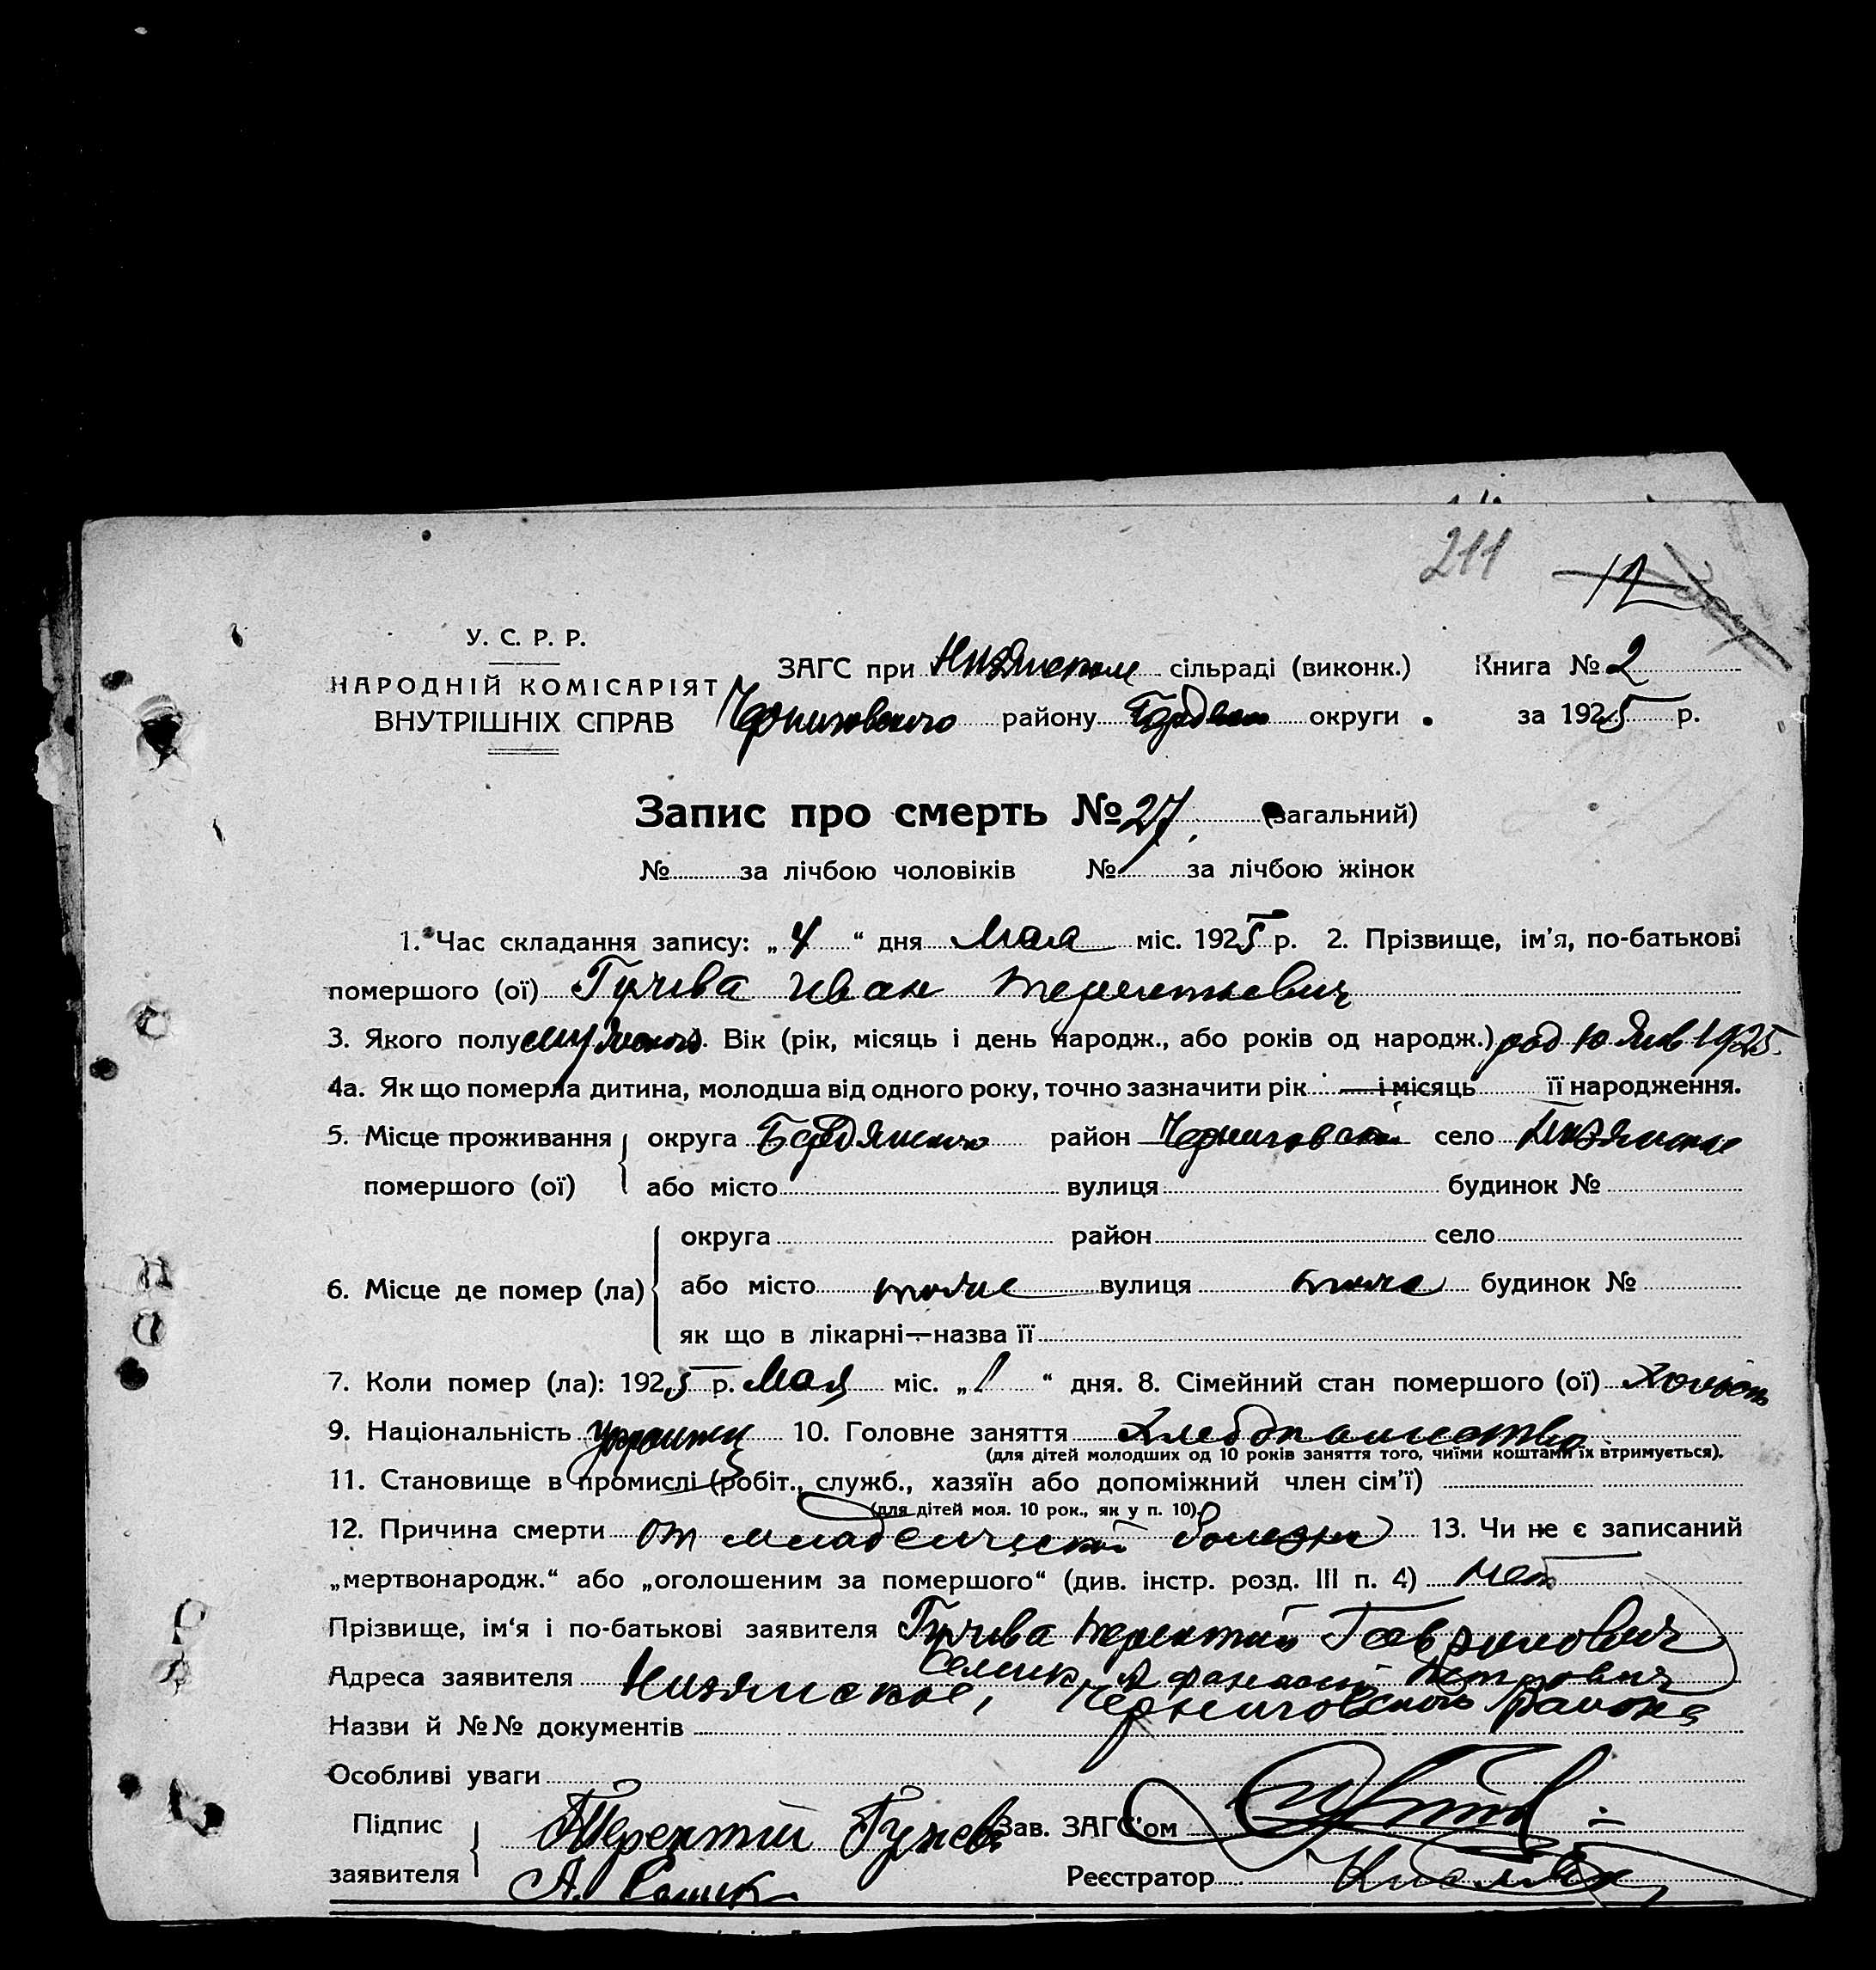 211
12
У. С. Р. Р.
НАРОДНІЙ КОМІСАРІЯТ
ВНУТРІШНІХ СПРАВ
ЗАГС при сільраді (виконк.) Книга № 2
Черниговского району округи за 1925 р.
Запис про смерть № 27 (загальний)
№ за лічбою чоловіків № за лічбою жінок
1. Час складання запису: „4“ дня Мая міс. 1925 р. 2. Прізвище, ім'я, по-батькові
помершого (ої) Гучива Иван Терентиевич
3. Якого полу мужского. Вік (рік, місяць і день народж., або років од народж.) род 10 Янв 1925
4а. Як що померла дитина, молодша від одного року, точно зазначити рік — і місяць її народження.
5. Місце проживання округа Бердянского район Черниговский село
помершого (ої) або місто вулиця будинок №
округа район село
6. Місце де помер (ла) або місто тоже вулиця тоже будинок №
як що в лікарні—назва її
7. Коли помер (ла): 1925 р. Мая міс. „1“ дня. 8. Сімейний стан помершого (ої) холост
9. Національність 10. Головне заняття Хлебопашество
(для дітей молодших од 10 років заняття того, чиїми коштами їх втримується).
11. Становище в промислі (робіт., служб., хазяїн або допоміжний член сім'ї)
(для дітей мол. 10 рок., як у п. 10)
12. Причина смерти От младенческой болезни 13. Чи не є записаний
„мертвонародж.“ або „оголошеним за помершого“ (див. інстр. розд. III п. 4) Нет
Прізвище, ім'я і по-батькові заявителя Гучива Терентий Гаврилович
Афанасий Петрович
Адреса заявителя Низянское, Черниговского Района
Назви й №№ документів
Особливі уваги
Підпис Терентий Зав. ЗАГС'ом
заявителя А. Реєстратор